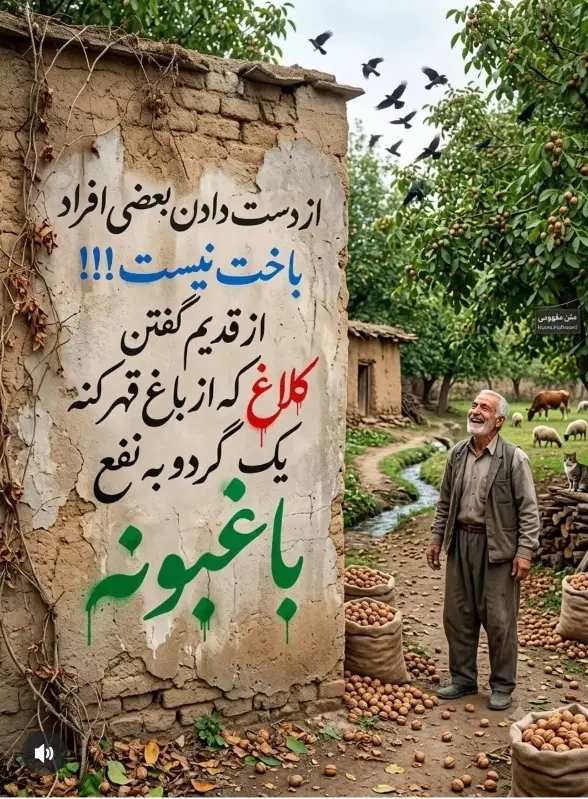 از دست دادن بعضی افراد
باخت نیست!!!
از قدیم گفتن
کلاغ که از باغ قهر کنه
یک گردو به نفع
باغبونه
متن مفهومی